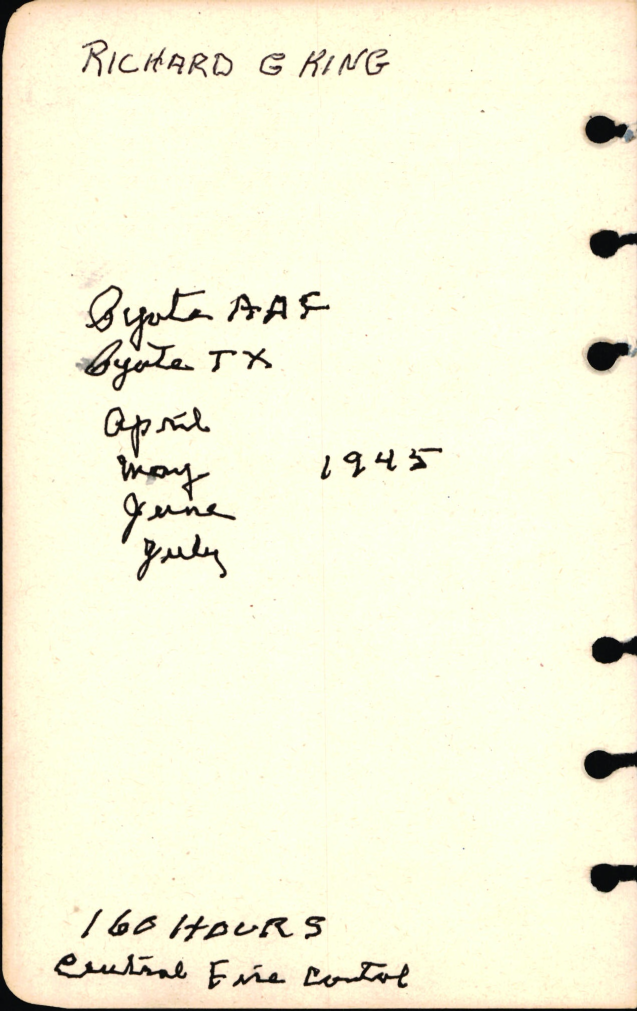 RICHARD G KING
Pyote AAF
Pyote TX
April
May 1945
June
July
160 HOURS
Central Fire Control